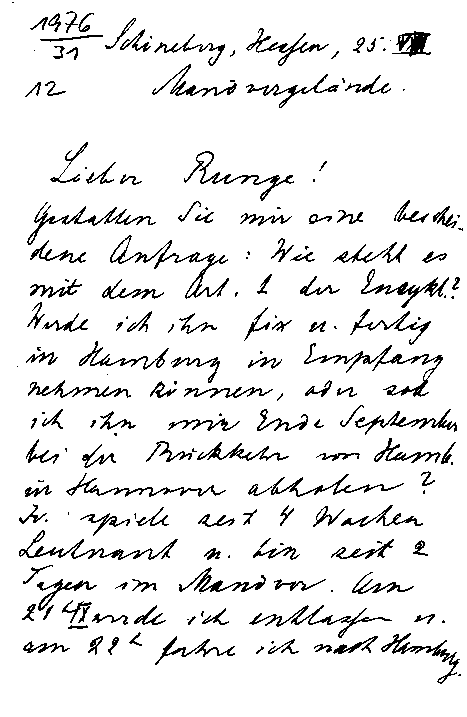 1976
31
Schöneberg, Hessen, 25. VIII
12 Manövergelände.
Lieber Runge!
Gestatten Sie mir eine beschei-
dene Anfrage: Wie steht es
mit dem Art. 1 der Enzykl.?
Werde ich ihn fix u. fertig
in Hamburg in Empfang
nehmen können, oder soll
ich ihn mir Ende September
bei der Rückkehr von Hamb.
in Hannover abholen?
Ich spiele seit 4 Wochen
Leutnant u. bin seit 2
Tagen im Manöver. Am
21t IX werde ich entlassen u.
am 22t fahre ich nach Hamburg.